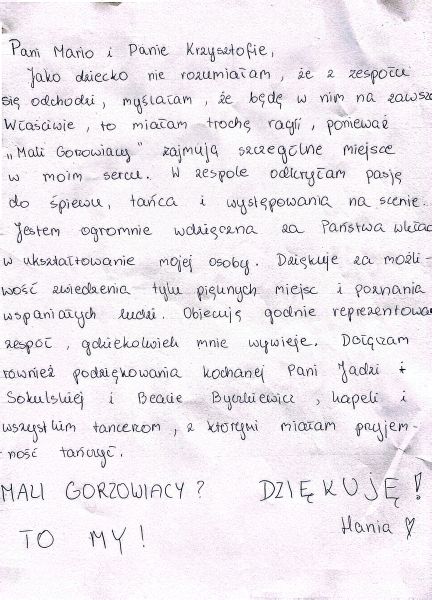 Pani Mario i Panie Krzysztofie,
Jako dziecko nie rozumiałam, że z zespołu
się odchodzi, myślałam, że będę w nim na zawsze
Właściwie, to miałam trochę racji, ponieważ
„Mali Gorzowiacy" zajmują szczególne miejsce
w moim sercu. W zespole odkryłam pasję
do śpiewu, tańca i występowania na scenie.
Jestem ogromnie wdzięczna za Państwa wkład
w ukształtowanie mojej osoby. Dziękuję za możli-
wość zwiedzenia tylu pięknych miejsc i poznania
wspaniałych ludzi. Obiecuję godnie reprezentować
zespół, gdziekolwiek mnie wywieje. Dołączam
również podziękowania kochanej Pani Jadzi
Sokulskiej i Beacie Byczkiewicz, kapeli i
wszystkim tancerzom, z którymi miałam przyjem-
ność tańczyć.
MALI GORZOWIACY? DZIĘKUJĘ!
TO MY! Hania ♡